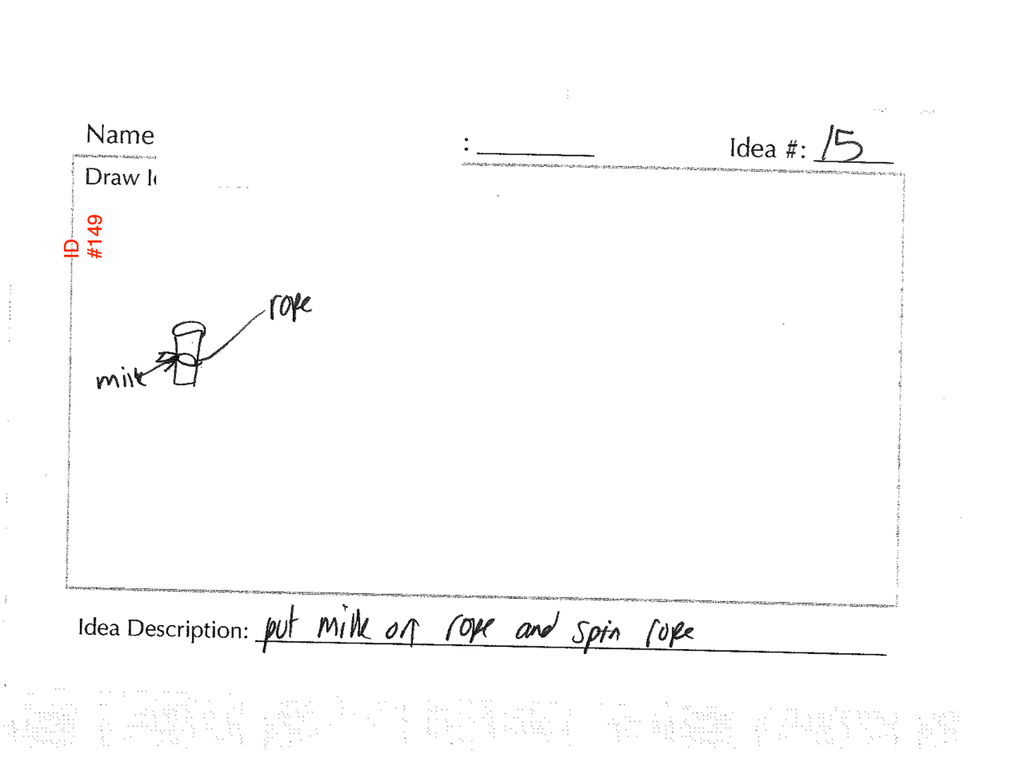 Name : Idea #: 15
Draw I
ID
#149
rope
milk
Idea Description: put milk on rope and spin rope